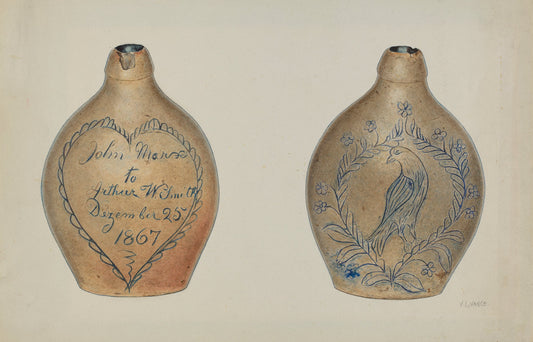 John Mans
to
Arthur W. Smith
Dezember 25
1867
V. L. VANCE